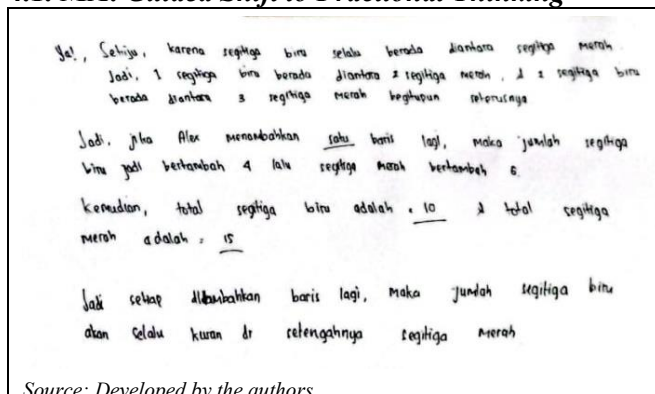 Ya!, Setuju, karena segitiga biru selalu berada diantara segitiga merah
Jadi, 1 segitiga biru berada diantara 2 segitiga merah, & 2 segitiga biru
berada diantara 3 segitiga merah begitupun seterusnya
Jadi, jika Alex menambahkan satu baris lagi, maka jumlah segitiga
biru jadi bertambah 4 lalu segitiga merah bertambah 6.
Kemudian, total segitiga biru adalah = 10 & total segitiga
merah adalah = 15
Jadi setiap ditambahkan baris lagi, maka jumlah segitiga biru
akan selalu kuran dr setengahnya segitiga merah
Source: Developed by the authors